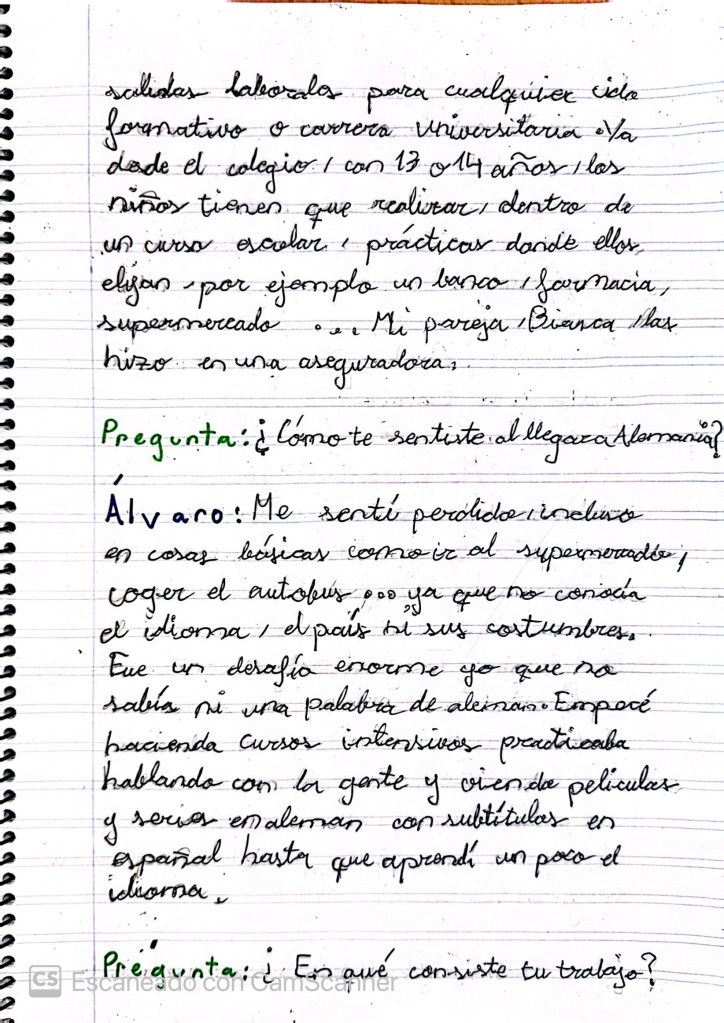 salidas laborales para cualquier ciclo
formativo o carrera universitaria. Ya
desde el colegio, con 13 o 14 años, los
niños tienen que realizar, dentro de
un curso escolar, prácticas donde ellos
elijan, por ejemplo un banco, farmacia,
supermercado ... Mi pareja, Bianca, las
hizo en una aseguradora.
Pregunta: ¿Cómo te sentiste al llegar a Alemania?
Álvaro: Me sentí perdido, incluso
en cosas básicas como ir al supermercado,
coger el autobús ... ya que no conocía
el idioma, el país ni sus costumbres.
Fue un desafío enorme ya que no
sabía ni una palabra de aleman. Empecé
haciendo cursos intensivos practicaba
hablando con la gente y viendo películas
y series en aleman con subtítulos en
español hasta que aprendí un poco el
idioma.
Pregunta: ¿ En qué consiste tu trabajo?
CS Escaneado con CamScanner